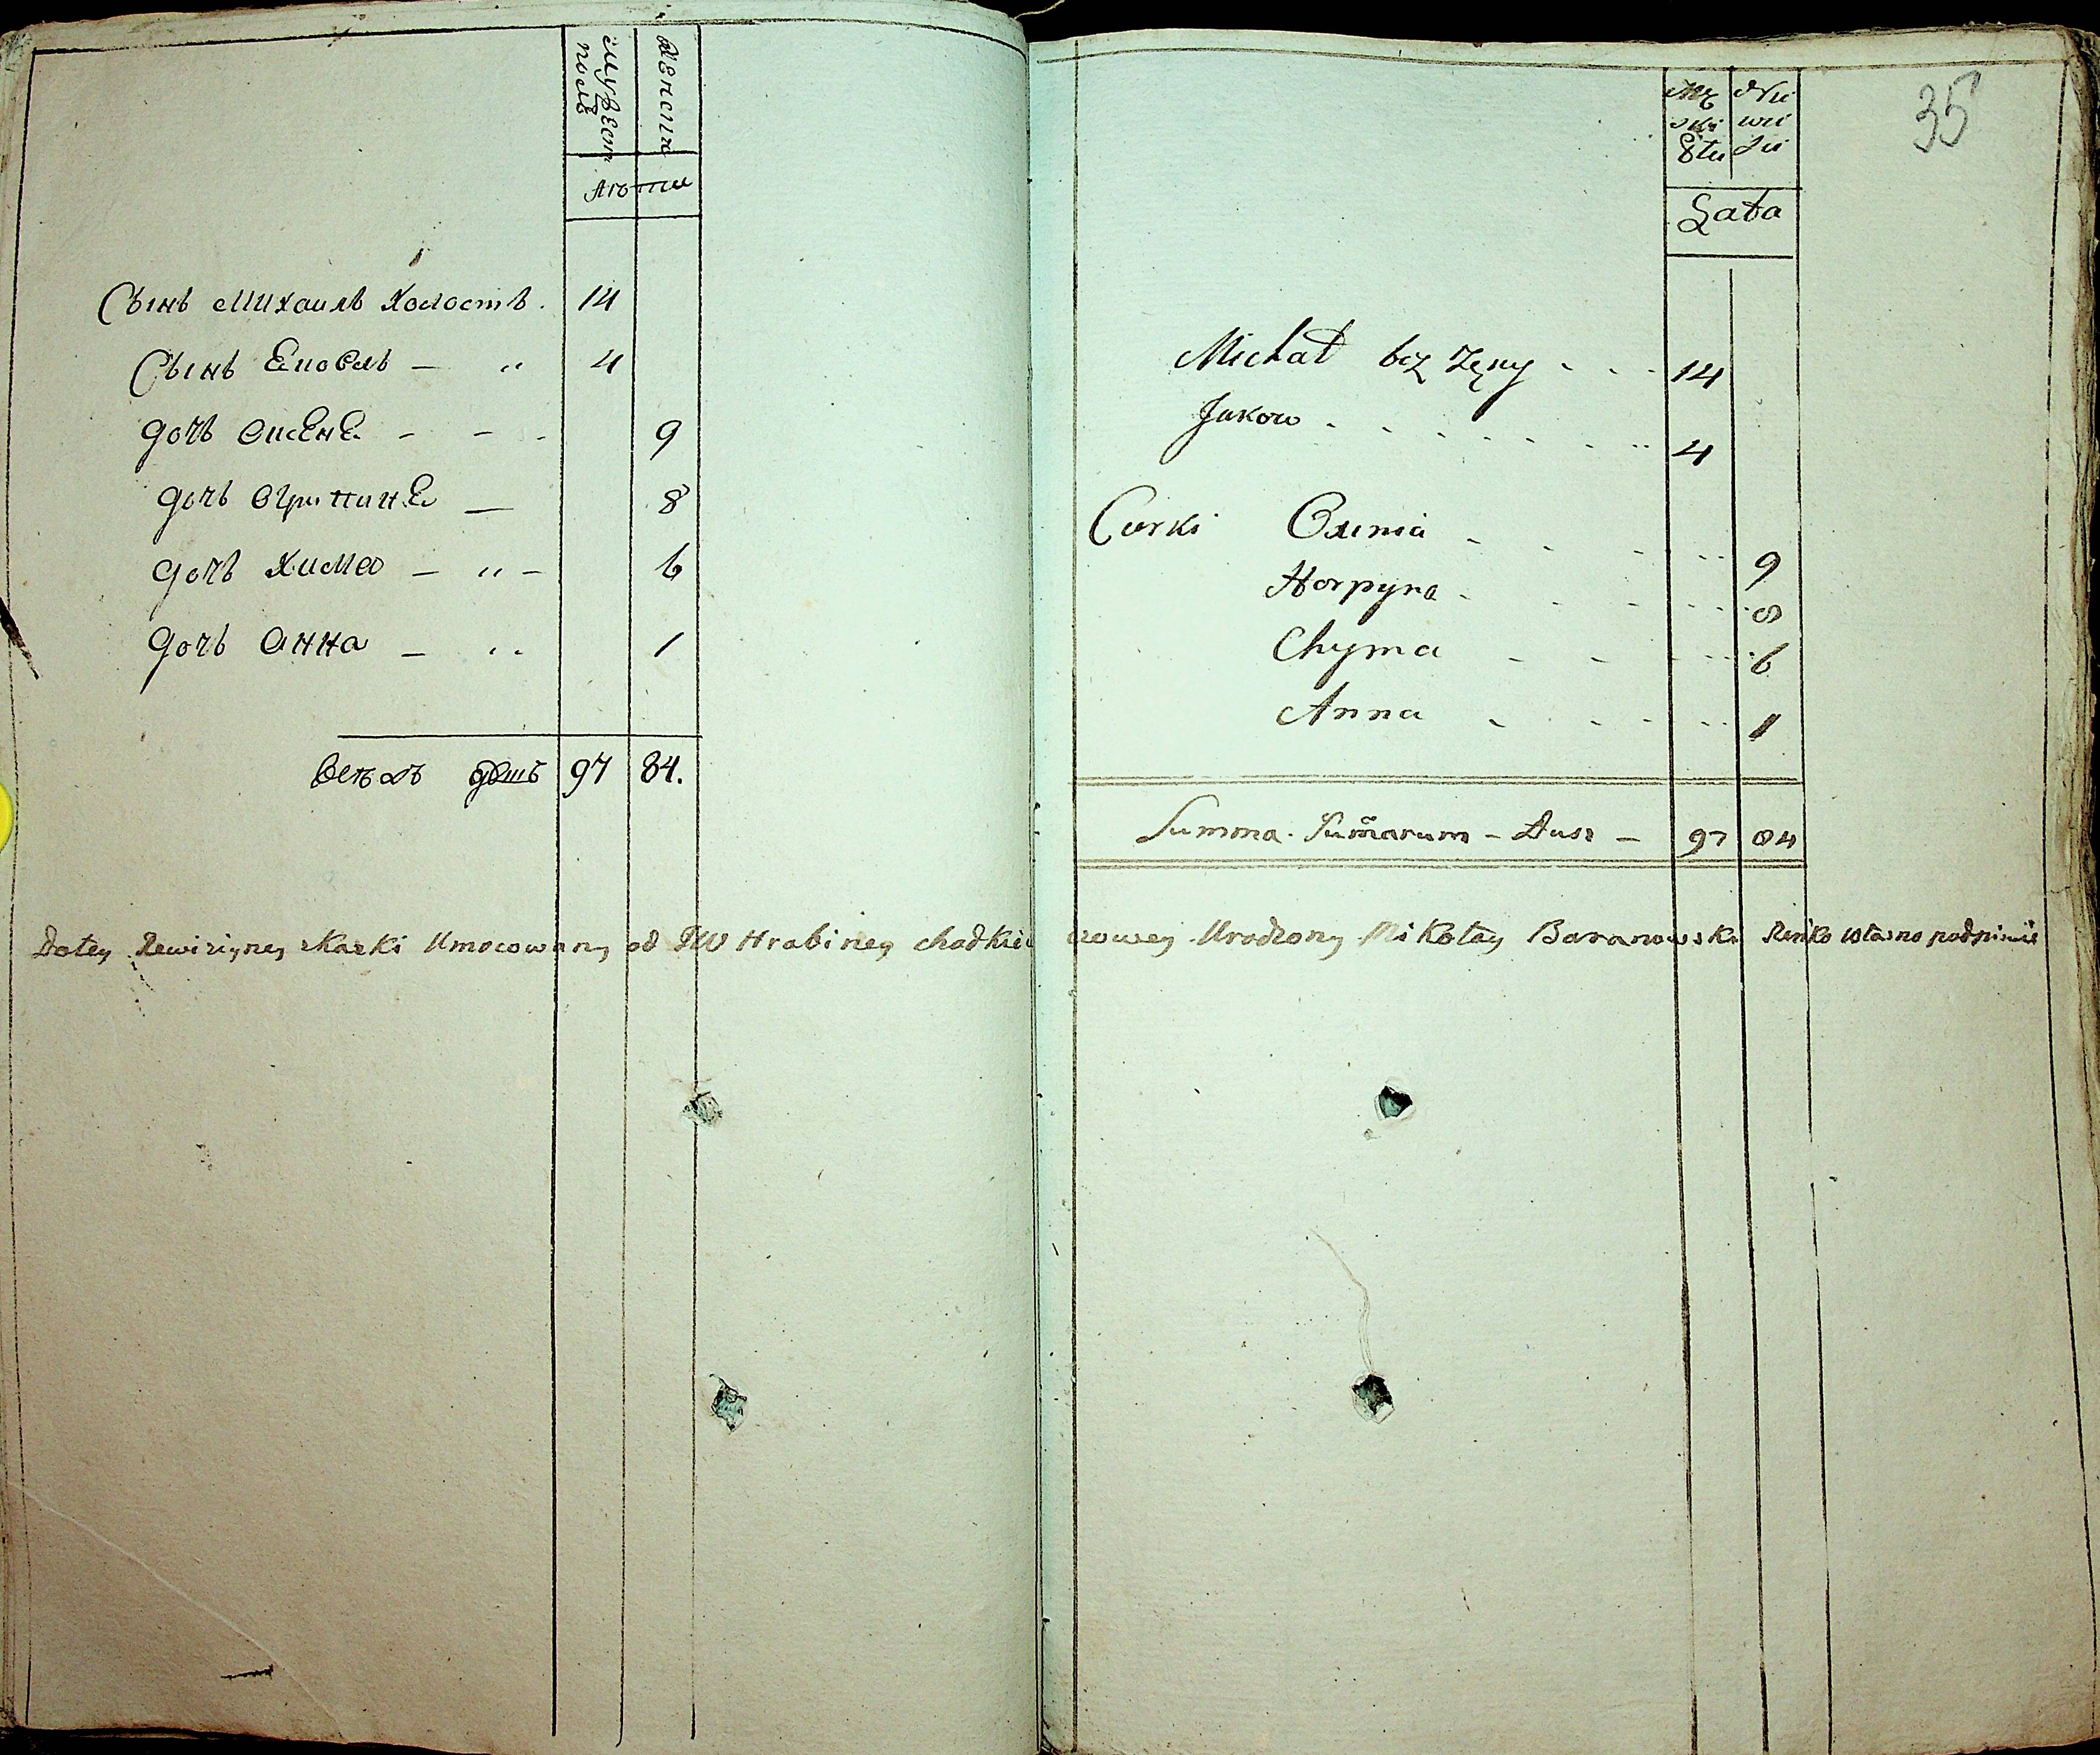 мужеск
полѣ
женски
лѣти
Сынъ Михаилъ холостъ. 14
Сынъ Еповлъ — „ 4
дочь Оксене - - - 9
дочь Огрипине — 8
дочь Химо — „ — 6
дочь Анна — „ 1
Всѣхъ душъ 97 84.
35
Mę Nie
ski wie
Płci Sci
Lata
Michał bez Żęny - - - 14
Jakow - - - - - 4
Curki Oxinia - - - - 9
Horpyna - - - - 8
Chyma - - - - 6
Anna - - - - 1
Summa Sum̃arum - Dusz - 97 84
Dotey Rewizyiney skazki Umocowany od JW Hrabiney Chodkiewiczowey Urodzony Mikołay Baranowski Renko własno podpisuie